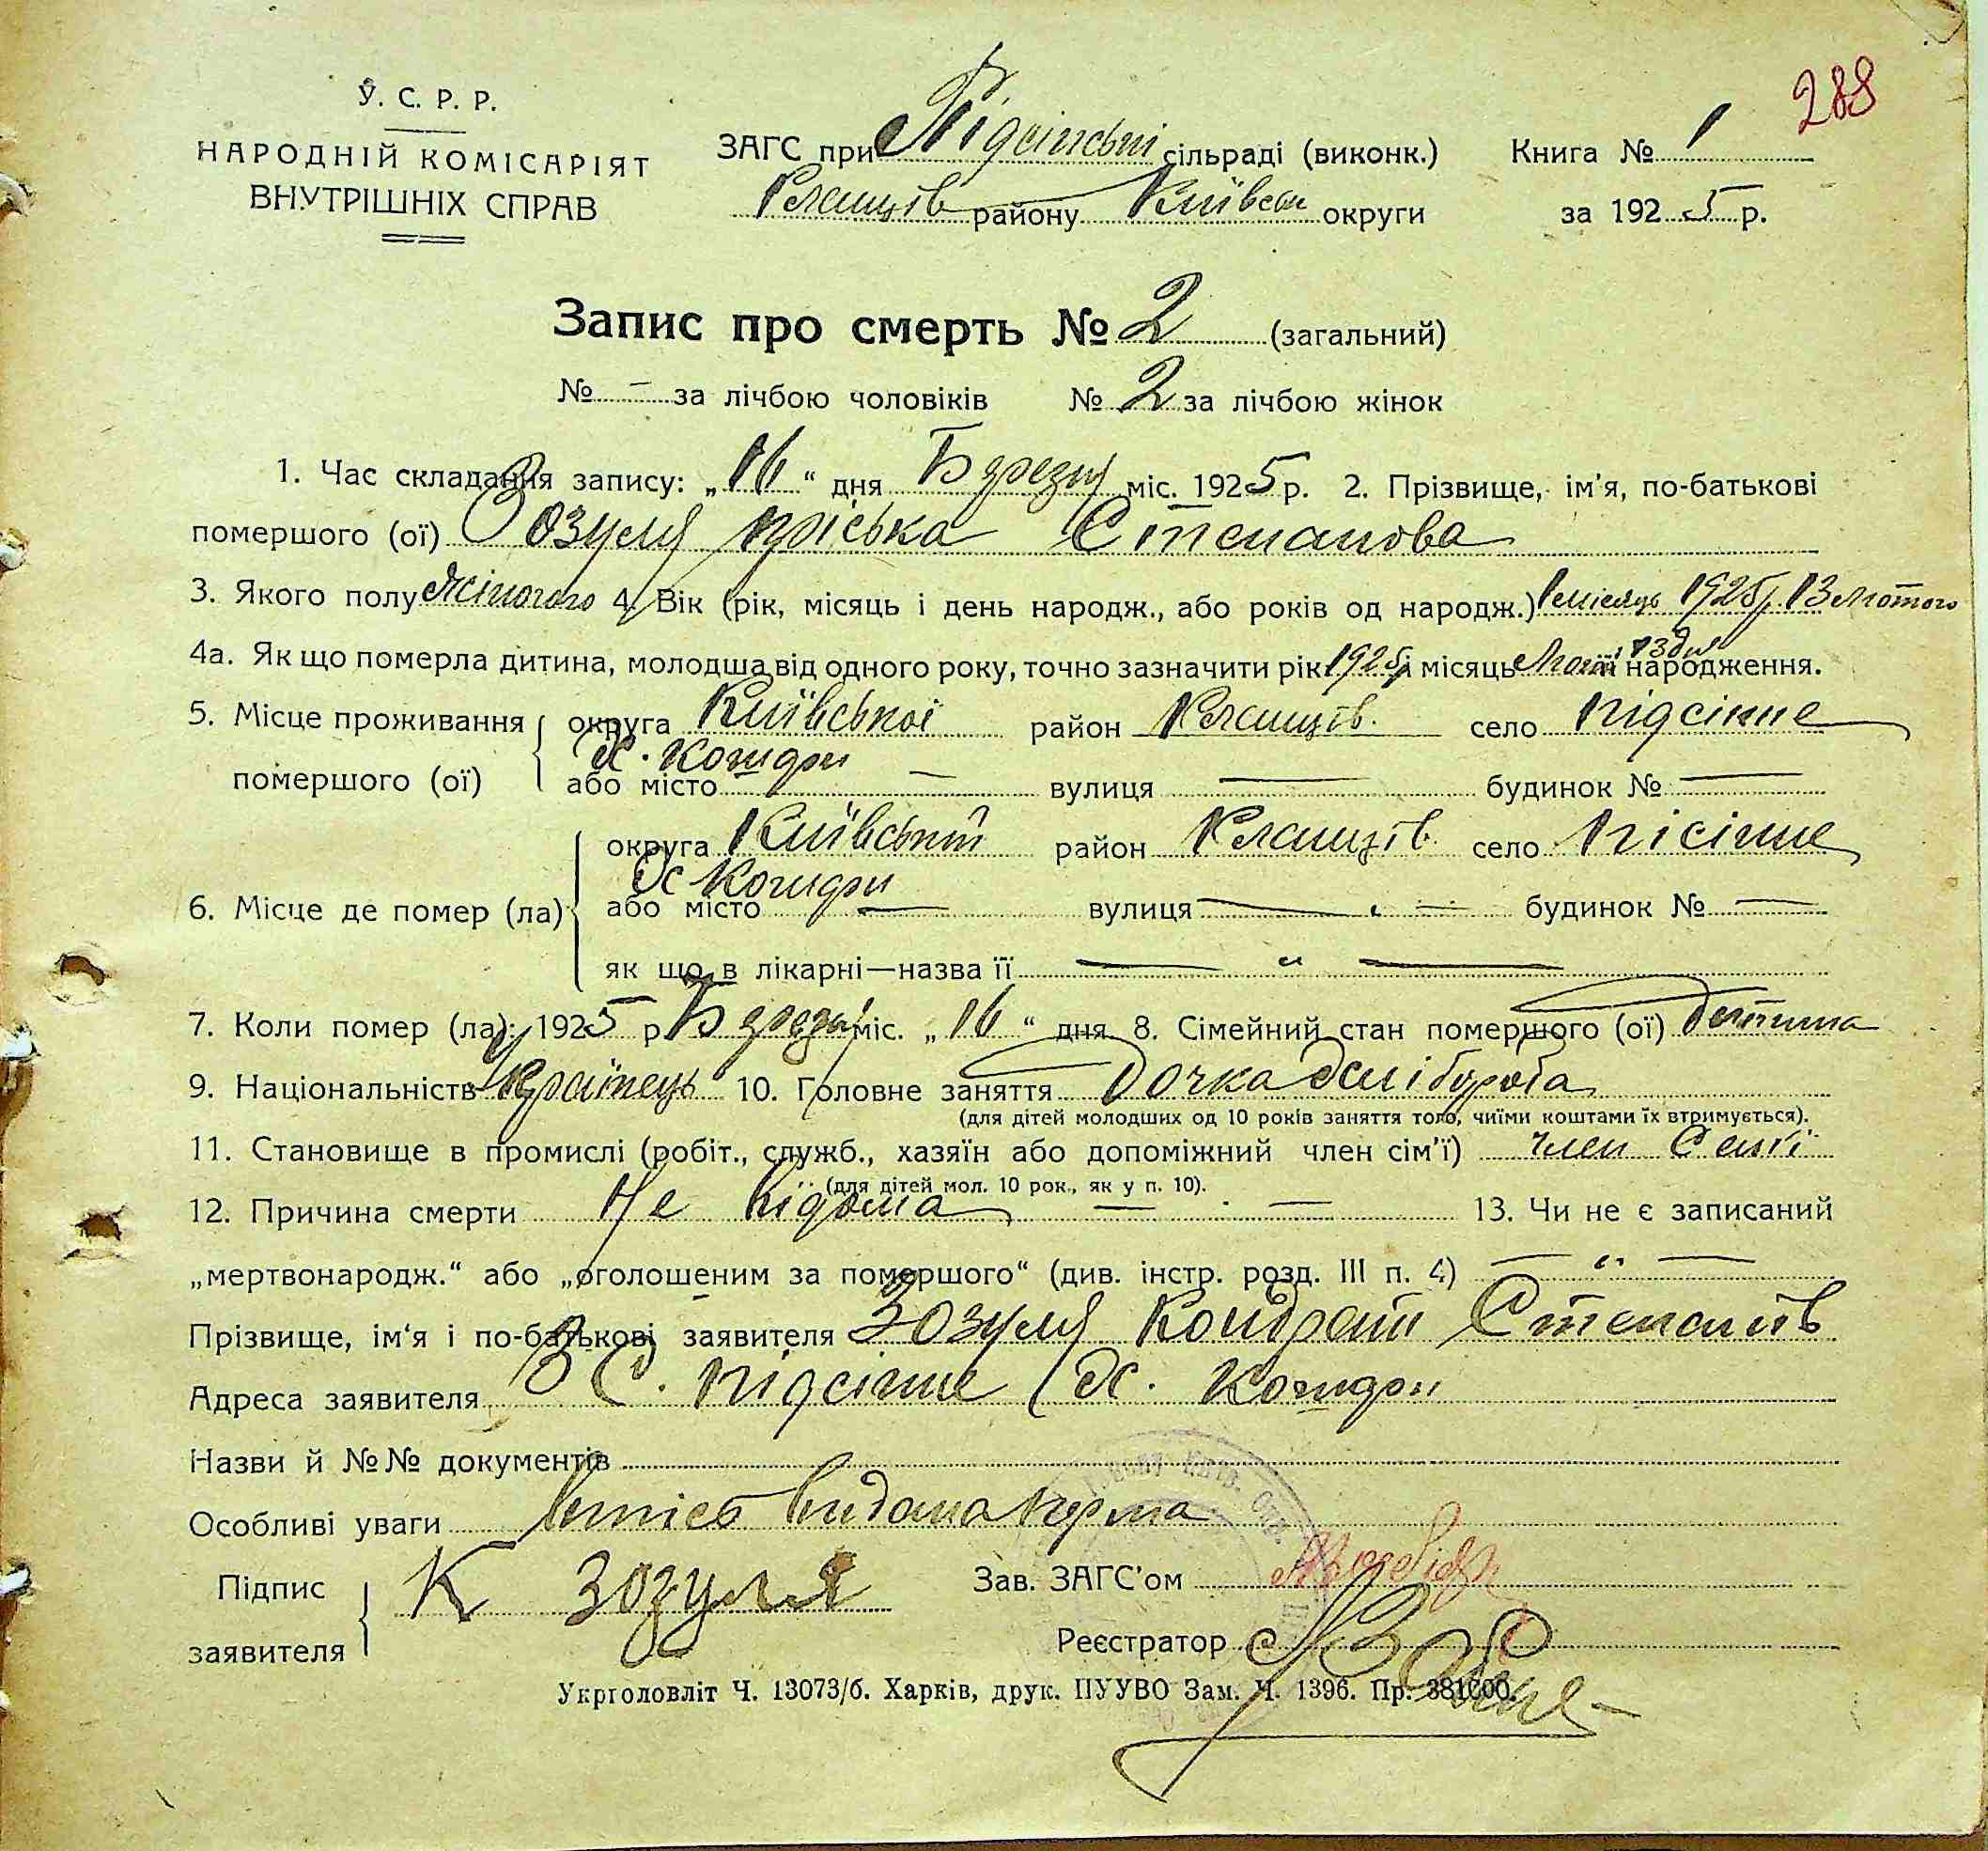 288
У. С. Р. Р.
НАРОДНІЙ КОМІСАРІЯТ
ВНУТРІШНІХ СПРАВ
ЗАГС при сільраді (виконк.)
району Київськ округи
Книга № 1
за 1925 р.
Запис про смерть № 2 (загальний)
№ - за лічбою чоловіків № 2 за лічбою жінок
1. Час складання запису: „16“ дня Березня міс. 1925 р. 2. Прізвище, ім'я, по-батькові
помершого (ої) Зозуля Пріська Степанова
3. Якого полу жіночого 4. Вік (рік, місяць і день народж., або років од народж.) 1 місяць 1925 р. 13 лютого
4а. Як що померла дитина, молодша від одного року, точно зазначити рік 1925 р і місяць її народження. 13 дня
5. Місце проживання помершого (ої) округа Київської район село Підсінне
Х. Кошдри
або місто — вулиця — будинок № —
6. Місце де помер (ла) округа Київській район село Пісінне
Х Кошдри
або місто — вулиця — „ — будинок № —
як що в лікарні—назва її — „ —
7. Коли помер (ла): 1925 р. Березня міс. „16“ дня 8. Сімейний стан помершого (ої) Дитина
9. Національність Українець 10. Головне заняття Дочка хлібороба
(для дітей молодших од 10 років заняття того, чиїми коштами їх втримується).
11. Становище в промислі (робіт., служб., хазяїн або допоміжний член сім'ї) член Семї
(для дітей мол. 10 рок., як у п. 10).
12. Причина смерти Не відома — 13. Чи не є записаний
„мертвонародж.“ або „оголошеним за помершого“ (див. інстр. розд. III п. 4) — „ —
Прізвище, ім'я і по-батькові заявителя Зозуля Кондрат Степанів
Адреса заявителя З С. Підсінне Х. Кошдри
Назви й №№ документів
Особливі уваги видана
Підпис заявителя К Зозуля
Зав. ЗАГС'ом
Реєстратор
Укрголовліт Ч. 13073/б. Харків, друк. ПУУВО Зам. Ч. 1396. Пр. 381000.